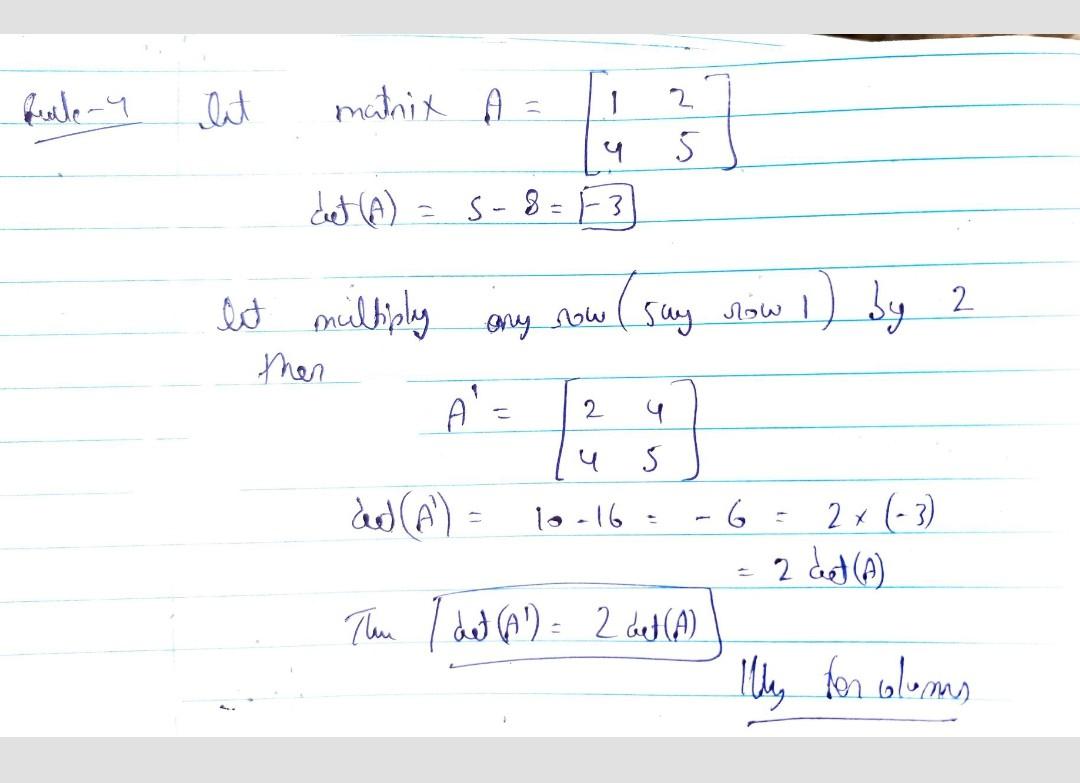 Rule-4 let matrix A = [1 2
4 5]
det(A) = 5 - 8 = -3
let multiply any row (say row 1) by 2
then
A' = [2 4
4 5]
det(A') = 10 - 16 = - 6 = 2 x (-3)
= 2 det(A)
Thu det(A') = 2 det(A)
llly for colums